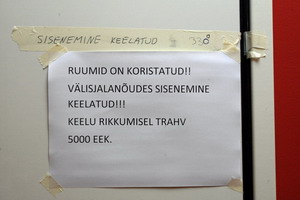 SISENEMINE KEELATUD
RUUMID ON KORISTATUD!!
VÄLISJALANÕUDES SISENEMINE
KEELATUD!!!
KEELU RIKKUMISEL TRAHV
5000 EEK.